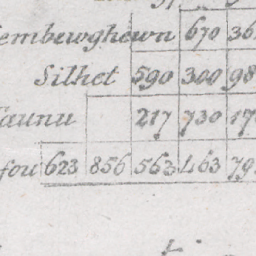 embewghewn 670 36
Silhet 590 300 98
aunu 217 730 17
fou 623 856 563 463 79